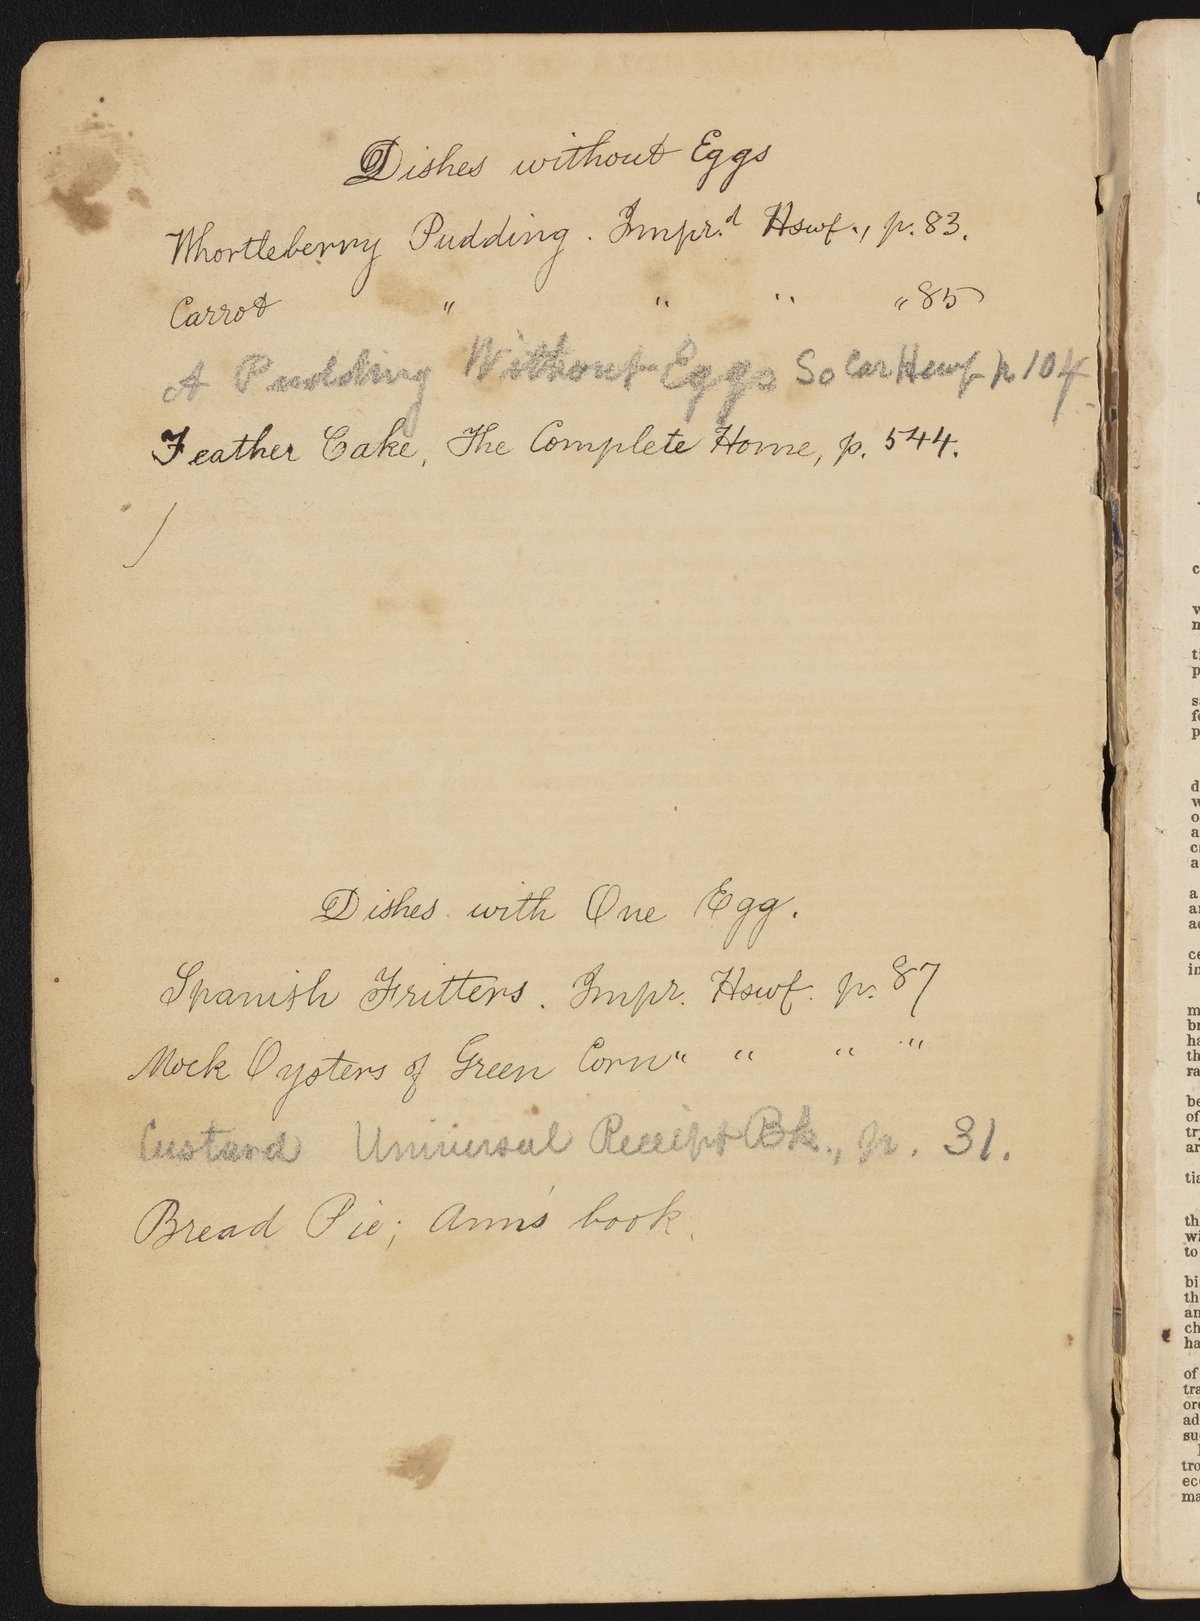 Dishes without Eggs
Whortleberry Pudding. Impr.d Hswf., p. 83.
Carrot " " " " 85
A Pudding Without Eggs So Car Hswf p 104
Feather Cake, The Complete Home, p. 544.
Dishes with One Egg.
Spanish Fritters. Impr. Hswf. p. 87
Mock Oysters of Green Corn " " " "
Custard Universal Receipt Bk., p. 31.
Bread Pie; Ann's book.